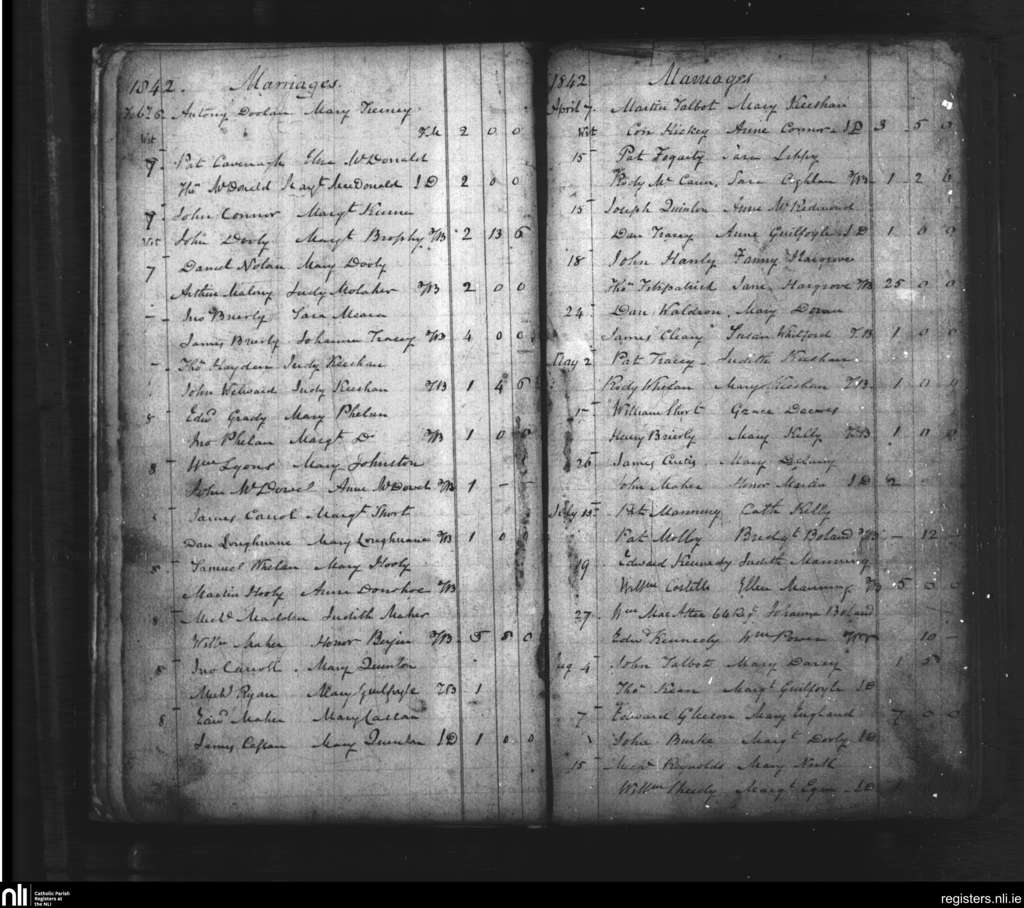 1842. Marriages.
Feb 6 Antony Doolan Mary Tierney
2 0 0
7 Pat Cavenagh McDonald
Thos McDonald Margt McDonald JD 2 0 0
7 John Connor Margt
John Dooly Margt Brophy WB 2 13 6
7 Daniel Nolan Mary Dooly
Arthur Malony Judy WB 2 0 0
Jno Brierly Sara Meara
James Brierly Johanna Tracey WB 4 0 0
Thos Hayden Judy Keeshan
John Judy Keeshan WB 1 4 6
8 Edwd Grady Mary Phelan
Jno Phelan Margt Do WB 1 0 0
8 Wm Lyons Mary Johnston
John McDowel Anne McDowel WB 1 - -
James Carrol Margt Short
Dan Loughnane Mary Loughnane WB 1 0
8 Samuel Whelan Mary Hooly
Martin Hooly Anne Donohoe WB
8 Michl Madden Judith Maher
Willm Maher Honor WB 5 0
8 Jno Carroll Mary Quinton
Michl Ryan Mary Guilfoyle WB 1
8 Edwd Maher Mary
James Mary Quinton JD 1 0 0
1842 Marriages
April 7. Martin Talbot Mary Keeshan
Con Hickey Anne Connor JD 3 5 0
15 Pat Fogarty Sara
Rody McCann, Sara Coghlan WB 1 2 6
15 Joseph Quinton Anne McRedmond
Dan Tracey Anne Guilfoyle JD 1 0 0
18 John Hanly Fanny Hargrove
Thos Fitzpatrick Jane Hargrove WB 25 0 0
24 Dan Waldron, Mary Doran
James Cleary Susan Whitford WB 1 0 0
May 2 Pat Tracey Judith Keeshan
Rody Whelan Mary Keeshan WB 1 0 0
William Short Grace
Henry Brierly Mary Kelly WB 1 0 0
26 James Curtis Mary Delany
John Maher Honor JD 2
July 15 Pat Manning Cath Kelly
Pat Molloy Bridgt Boland WB - 12 -
19 Edward Kennedy Judith Manning
Willm Costello Ellen Manning WB 5 0 0
27 Wm Johanna Boland
Edwd Kennedy Wm Power 10 -
Aug 4 John Talbot Mary Darcy 5
Thos Kean Margt Guilfoyle JD
7 Edward Gleeson Mary England 7 0 0
John Burke Margt Dooly JD
15 Michl Reynolds Mary North
Willm Sheedy Margt Egan JD
nli Catholic Parish
Registers at
the NLI
registers.nli.ie